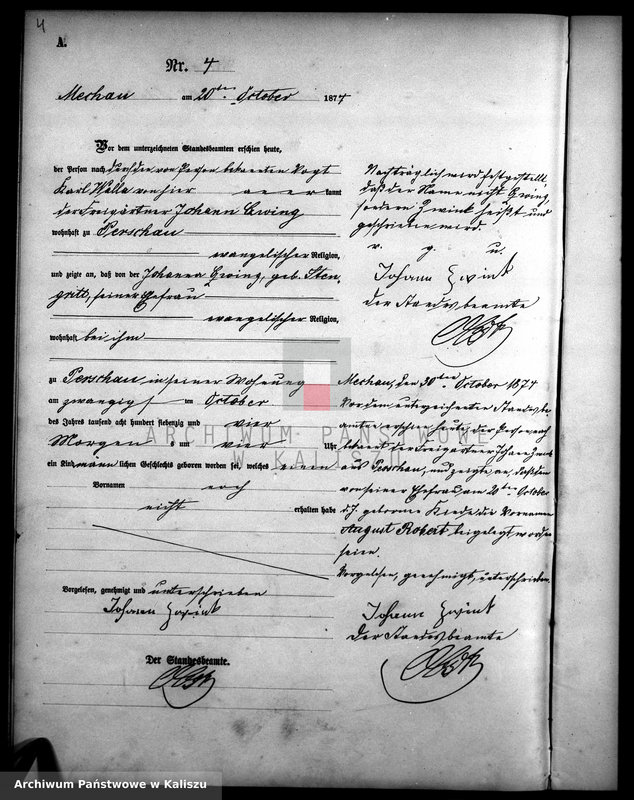 4
A.
Nr. 4
Mechau am 20ten October 1874
Vor dem unterzeichneten Standesbeamten erschien heute,
der Person nach durch den von Person bekannten Vogt
Karl Walla von hier kannt
der Freigärtner Johann Zwing
wohnhaft zu Perschau
evangelischer Religion,
und zeigte an, daß von der Johanna Zwing, geb. Sten-
gritt, seiner Ehefrau
evangelischer Religion,
wohnhaft bei ihm
zu Perschau in seiner Wohnung
am zwanzigs ten October
des Jahres tausend acht hundert siebenzig und vier
Morgen s um vier Uhr
ein Kind männlichen Geschlechts geboren worden sei, welches einen
Vornamen noch
nicht erhalten habe
Vorgelesen, genehmigt und unterschrieben
Johann Zwink
Der Standesbeamte.
Nachträglich wird festgestellt
daß der Name nicht Zwing,
sondern Zwink heißt und
geschrieben wird.
v. g. u.
Johann Zwink
Der Standesbeamte
Mechau, den 30ten October 1874
Vor dem unterzeichneten Standesbe-
amten erschien heute, der Person nach
bekannt der Freigärtner Johann Zwink
aus Perschau, und zeigte an, daß dem
von seiner Ehefrau am 20ten October
d. J. geborene Kinde die Vornamen
August Robert beigelegt worden
seien.
Vorgelesen, genehmigt, unterschrieben
Johann Zwink
Der Standesbeamte
ARCHIWUM PAŃSTWOWE
W KALISZU
Archiwum Państwowe w Kaliszu